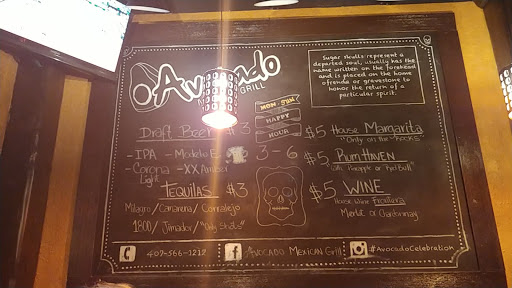 Avocado
GRILL
Sugar skulls represent a
departed soul, usually has the
name written on the forehead
and is placed on the home
ofrenda or gravestone to
honor the return of a
particular spirit.
Draft Beer $3
-IPA -Modelo E.
-Corona -XX Amber
Light
TEQUILAS $3
Milagro/Cazarena/Corralejo
1800/Jimador/"Only Shots"
MON-SUN
HAPPY
HOUR
3-6
$5 House Margarita
"Only on the "Rocks"
$5 Rum HAVEN
with Pineapple or Red Bull
$5 WINE
House Wine Frontera
Merlot or Chardonnay
407-566-1212
AVOCADO MEXICAN Grill
#AvocadoCelebration